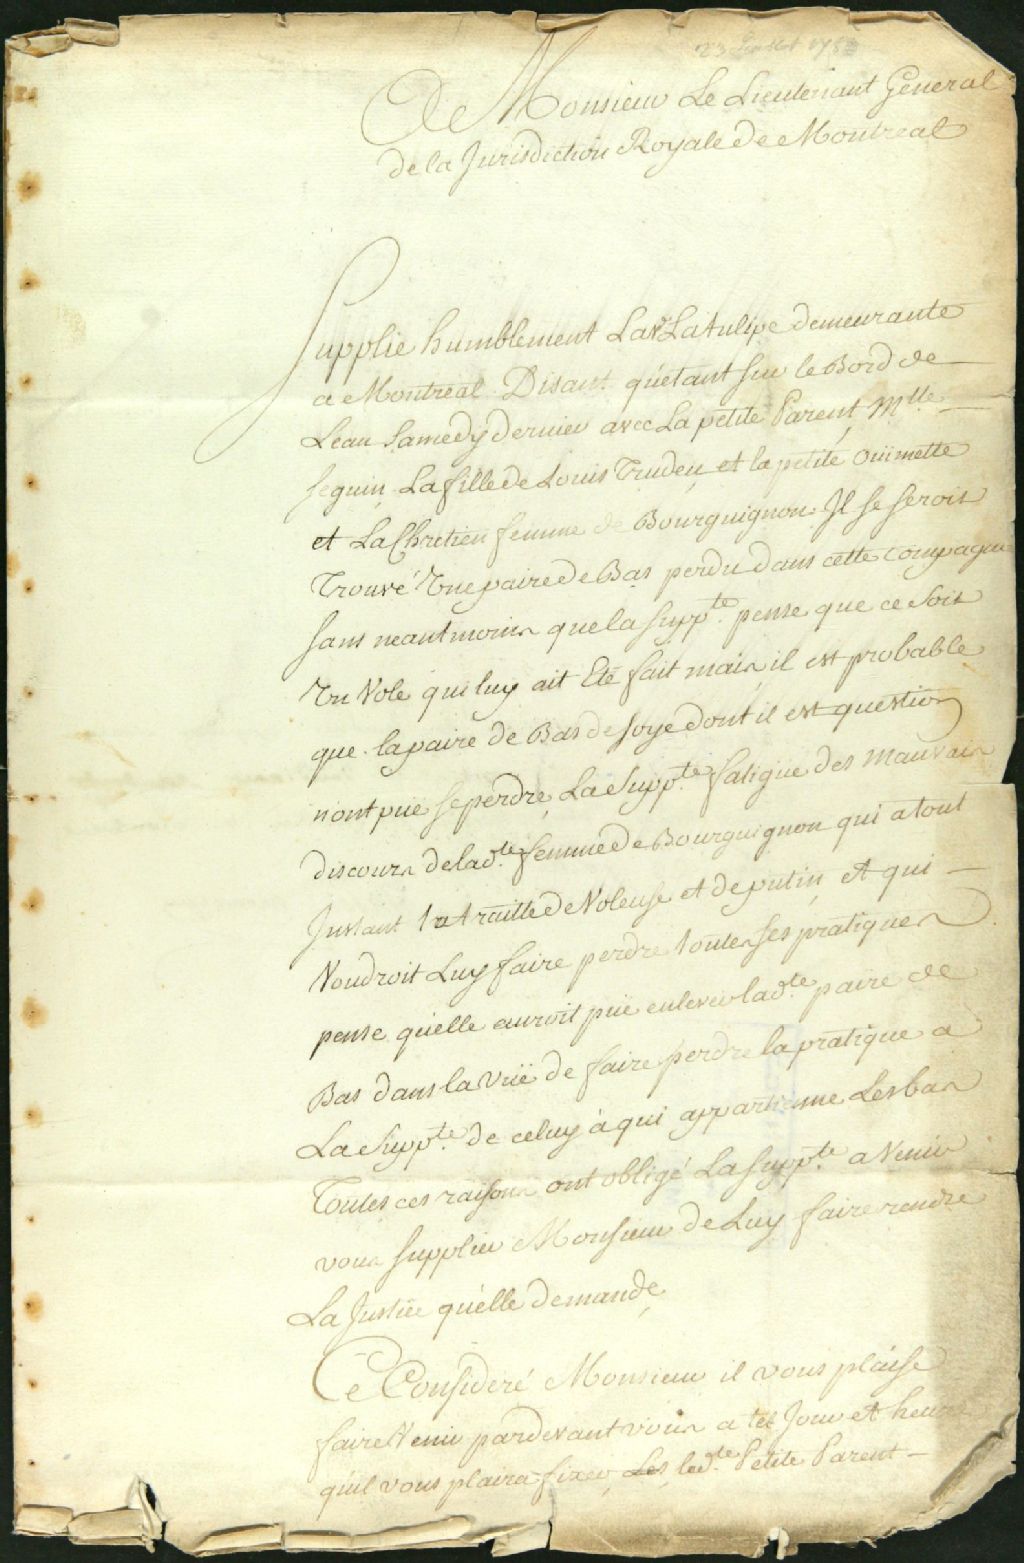 23 Juillet 1752
A Monsieur Le Lieutenant General
de la Jurisdiction Royale de Montreal
Supplie humblement La Ve. Latulipe demeurante
a Montreal Disant qu'etant sur le Bord de
Leau Samedy dernier avec La petite Parent, Mlle
Seguin, La fille de Louis Trudeu, et la petite Ouimette
et La Chretien femme de Bourguignon. Il se seroit
Trouvé Une paire de Bas perdu dans cette compagnie
sans neantmoins que la Suppte. pense que ce soit
Un Vole qui luy ait Eté fait mais, il est probable
que la paire de Bas de soye dont il est question
n'ont pue se perdre, La Suppte. fatigue des mauvais
discours de lade. femme de Bourguignon qui a tout
Instant la traitte de Voleuse et de putin, et qui
Voudroit Luy faire perdre toutes ses pratiques
pense qu'elle auroit pue enlever ladte. paire de
Bas dans la vuë de faire perdre la pratique a
La Suppte. de celuy à qui appartienne Les bas
Toutes ces raisons ont obligé La Suppte. a Venir
vous supplier Monsieur de Luy faire rendre
La Justice qu'elle demande,
Ce Consideré Monsieur il vous plaise
faire Venir pardevant vous a tel Jour et heure
quil vous plaira fixer, Les, ledte. Petite Parent